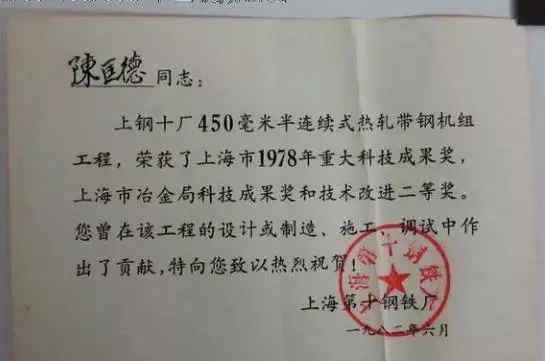 陳匡德 同志：
上钢十厂450毫米半连续式热轧带钢机组
工程，荣获了上海市1978年重大科技成果奖，
上海市冶金局科技成果奖和技术改进二等奖。
您曾在该工程的设计或制造、施工、调试中作
出了贡献，特向您致以热烈祝贺！
上海第十钢铁厂
上海第十钢铁厂
一九八二年六月